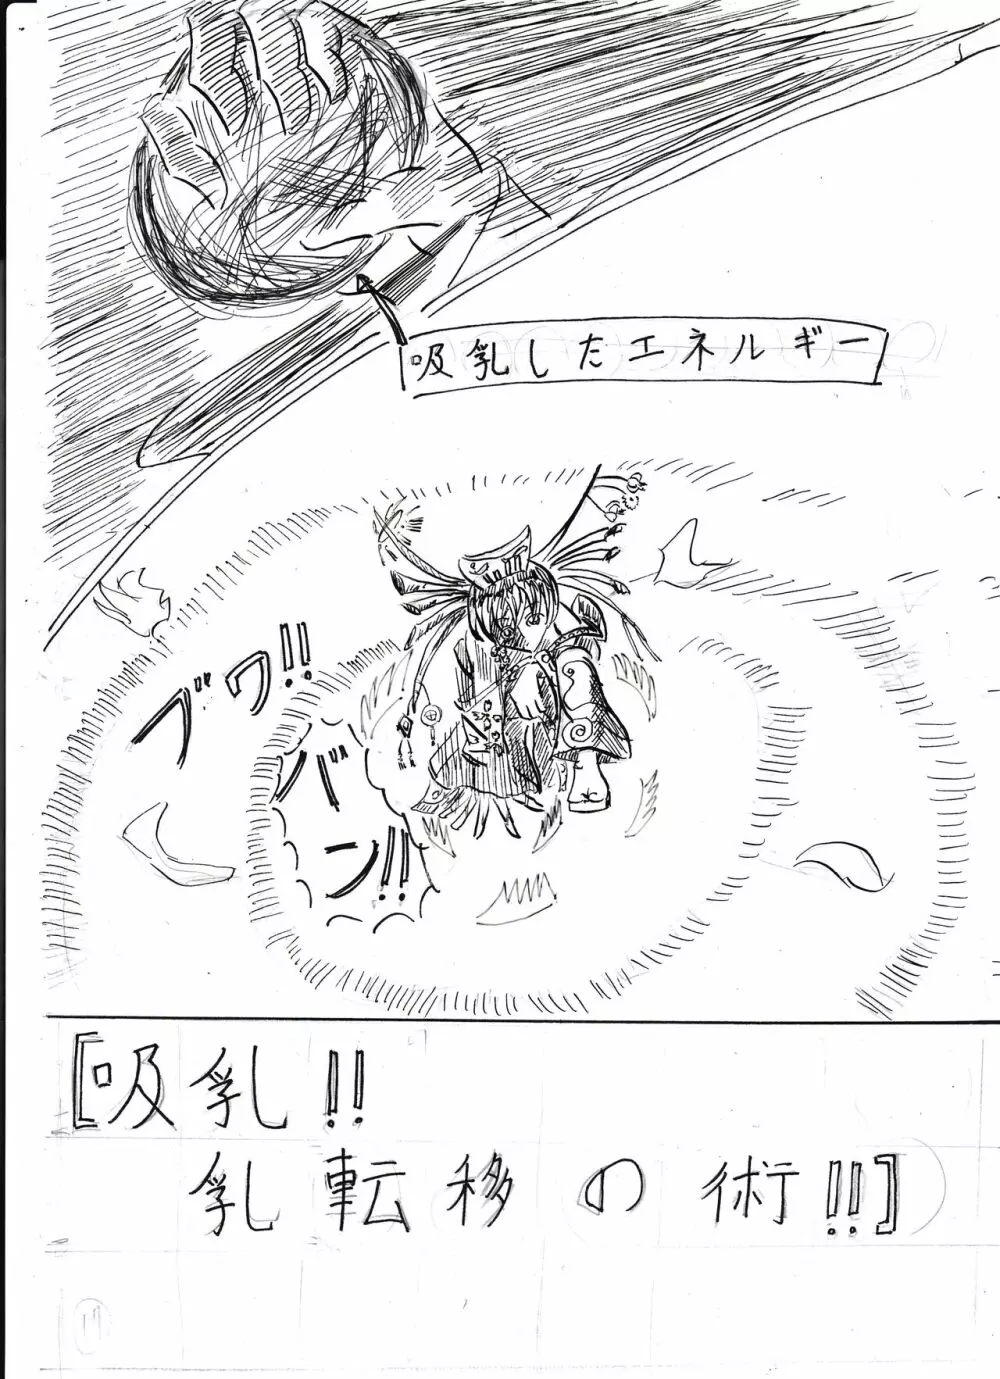 吸乳したエネルギー
ブワ!!
バン!!
[吸乳!!
乳転移の術!!]